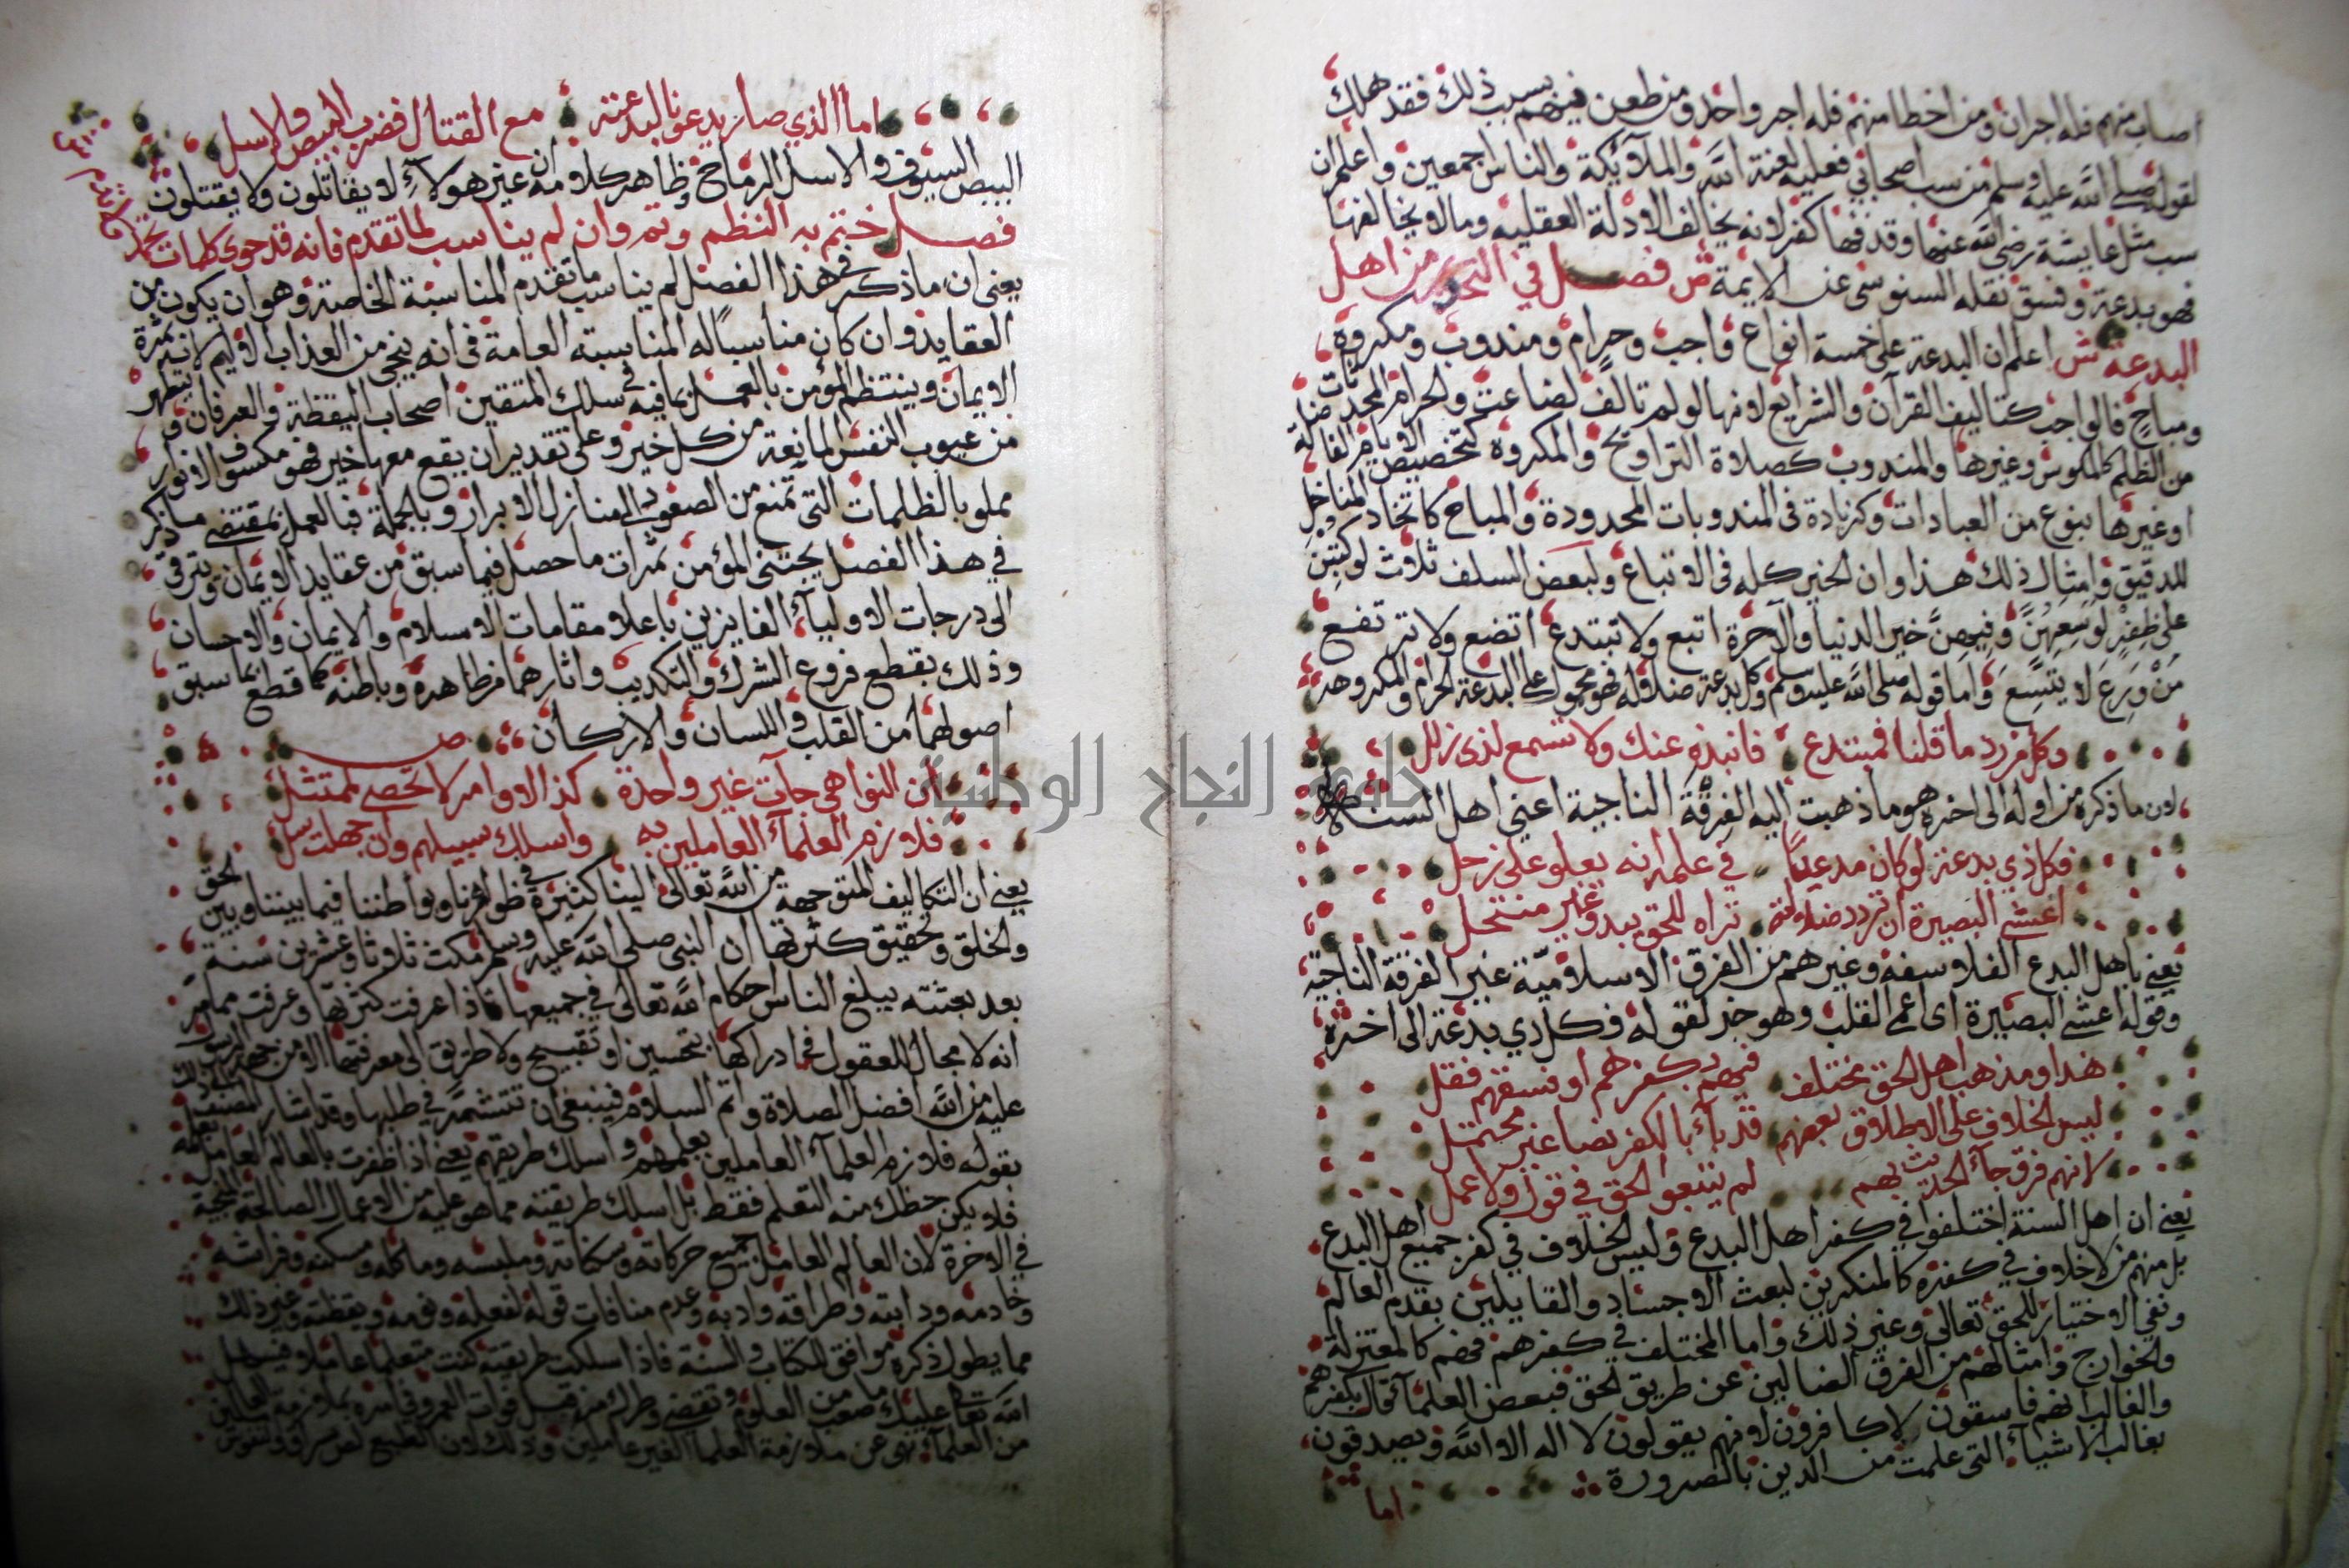 اصاب منهم فله اجران ومن اخطا منهم فله اجر واحد ومن طعن فيهم بسبب ذلك فقد هلك
لقوله صلى الله عليه وسلم من سب اصحابي فعليه لعنة الله والملائكة والناس اجمعين واعلم ان
سب مثل عايشة رضي الله عنها وقذفها كفر لانه يخالف الادلة العقلية وما لا يخالفها
فهو بدعة وفسق نقله السنوسى عن الايمة ص فصل في التحذير من اهل
البدعة ش اعلم ان البدعة على خمسة انواع واجب وحرام ومندوب ومكروه
ومباح فالواجب كتاليف القرآن والشرايع لانها لو لم تالف لضاعت والحرام المحدثات
من الظلم كالمكوس وغيرها والمندوب كصلاة التراويح والمكروه كتخصيص الايام الفاضلة
او غيرها بنوع من العبادات وكزيادة فى المندوبات المحدودة والمباح كاتخاذ المناخل
للدقيق وامثال ذلك هذا وان الخير كله فى الاتباع ولبعض السلف ثلاث لو كتبن
على ظفر لوسعهن وفيهن خير الدنيا والآخرة اتبع ولا تبتدع اتضع ولا ترتفع
من ورع لا يتسع واما قوله صلى الله عليه وسلم وكل بدعة ضلالة فهو محمول على البدعة الحرام والمكروهة
وكل من رد ما قلنا فمبتدع فانبذه عنك ولا تسمع لذى زلل
لان ما ذكره من اوله الى اخره هو ما ذهبت اليه الفرقة الناجية اعني اهل السنة
فكل ذي بدعة لو كان مدعيا في علمه انه يعلو على زحل
اعشى البصيرة ان تردد ضلالته تراه للحق يبدو غير منتحل
يعني باهل البدع الفلاسفه وغيرهم من الفرق الاسلامية غير الفرقة الناجية
وقوله اعشى البصيرة اى اعمى القلب وهو خبر لقوله فكل ذي بدعة الى اخره
هذا ومذهب اهل الحق مختلف فيهم بكفرهم او فسقهم فقل
ليس الخلاف على الاطلاق بعضهم قد بآء بالكفر نصا غير محتمل
لانهم فرق جآء الحديث بهم لم يتبعوا الحق في قول ولا عمل
يعني ان اهل السنة اختلفوا في كفر اهل البدع وليس الخلاف في كفر جميع اهل البدع
بل منهم من لا خلاف في كفره كالمنكرين لبعث الاجساد والقايلين بقدم العالم
ونفي الاختيار للحق تعالى وغير ذلك واما المختلف في كفرهم فهم كالمعتزلة
والخوارج وامثالهم من الفرق الضالين عن طريق الحق فبعض العلمآء قال بكفرهم
والغالب انهم فاسقون لا كافرون لانهم يقولون لا اله الا الله ويصدقون
بغالب الاشيآء التى علمت من الدين بالضرورة
اما
اما الذي صار يدعونا لبدعته مع القتال فضرب البيض والاسل
البيض السيوف والاسل الرماح وظاهر كلامه ان غير هولآء لا يقاتلون ولا يقتلون
كما تقدم
فصل ختم به النظم وتم وان لم يناسب لما تقدم فانه قد حوى كلمات
يعنى ان ما ذكر فى هذا الفصل لم يناسب ما تقدم المناسبة الخاصة وهو ان يكون من
العقايد وان كان مناسباً له المناسبة العامة فى انه ينجى من العذاب الاليم لانه ثمرة
الايمان وينتظم المؤمن بالعمل بما فيه في سلك المتقين اصحاب اليقظة والعرفان ويتطهر
من عيوب النفس المانعة من كل خير وعلى تقدير ان يقع معها خير فهو مكسوف الانوار
مملو بالظلمات التى تمنع من الصعود الى منازل الابرار وبالجملة فبالعمل بمقتضى ما ذكر
في هذا الفصل يجتنى المؤمن ثمرات ما حصل فيما سبق من عقايد الايمان ويترقى
الى درجات الاوليآء الفايزين باعلا مقامات الاسلام والايمان والاحسان
وذلك بقطع فروع الشرك والتكذيب واثارهما من ظاهره وباطنه كما قطع بما سبق
اصولهما من القلب واللسان والاركان ص
ان النواهي جآت غير واحدة كذا الاوامر لا تحصى لممتثل
فلازم العلمآء العاملين به واسلك سبيلهم وان جهلت سل
يعني ان التكاليف المتوجهة من الله تعالى الينا كثيرة في ظواهرنا وبواطننا فيما بيننا وبين الحق
والخلق وتحقيق كثرتها ان النبى صلى الله عليه وسلم مكث ثلاثا وعشرين سنة
بعد بعثته يبلغ الناس احكام الله تعالى في جميعها فاذا عرفت كثرتها وعرفت مما مر
انه لا مجال للعقول فى ادراكها بتحسين او تقبيح ولا طريق الى معرفتها الا من جهة الرسول
عليه من الله افضل الصلاة واتم السلام فينبغى ان تتشمر في طلبها وقد اشار المصنف الى ذلك
بقوله فلازم العلمآء العاملين بعلمهم واسلك طريقهم يعني اذا ظفرت بالعالم العامل بعلمه
فلا يكن حظك منه التعلم فقط بل اسلك طريقته مما هو عليه من الاعمال الصالحة المنجية
في الاخرة لان العالم العامل جميع حركاته وسكناته وملبسه وماكله ومسكنه وفراشه
وخادمه ودابته واطراقه وادبه وعدم منافات قوله لفعله ونومه ويقظته وغير ذلك
مما يطول ذكره موافق للكتاب والسنة فاذا سلكت طريقته كنت متعلما عاملا فيسهل
الله تعالى عليك ما صعب من العلوم وتقضي وطرك منه قبل فوات العمر وفى امره بملازمة العاملين
من العلمآء نهى عن ملازمة العلما الغير عاملين وذلك لان الطبع لص سراق والنفوس
جامعة النجاح الوطنية